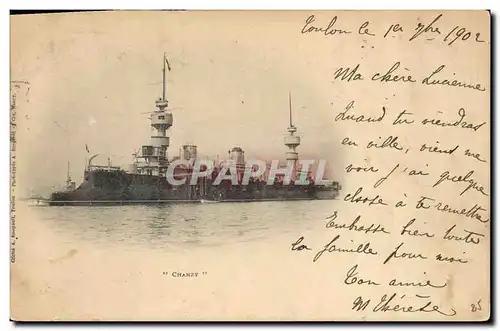 Toulon le 1er 7bre 1902
Ma chère Lucienne
Quand tu viendras
en ville, viens me
voir j'ai quelque
chose à te remettre
Embrasse bien toute
la famille pour moi
Ton amie
M Thérèse
CPARHIL
" CHANZY "
Cliché A. Bougault, Toulon